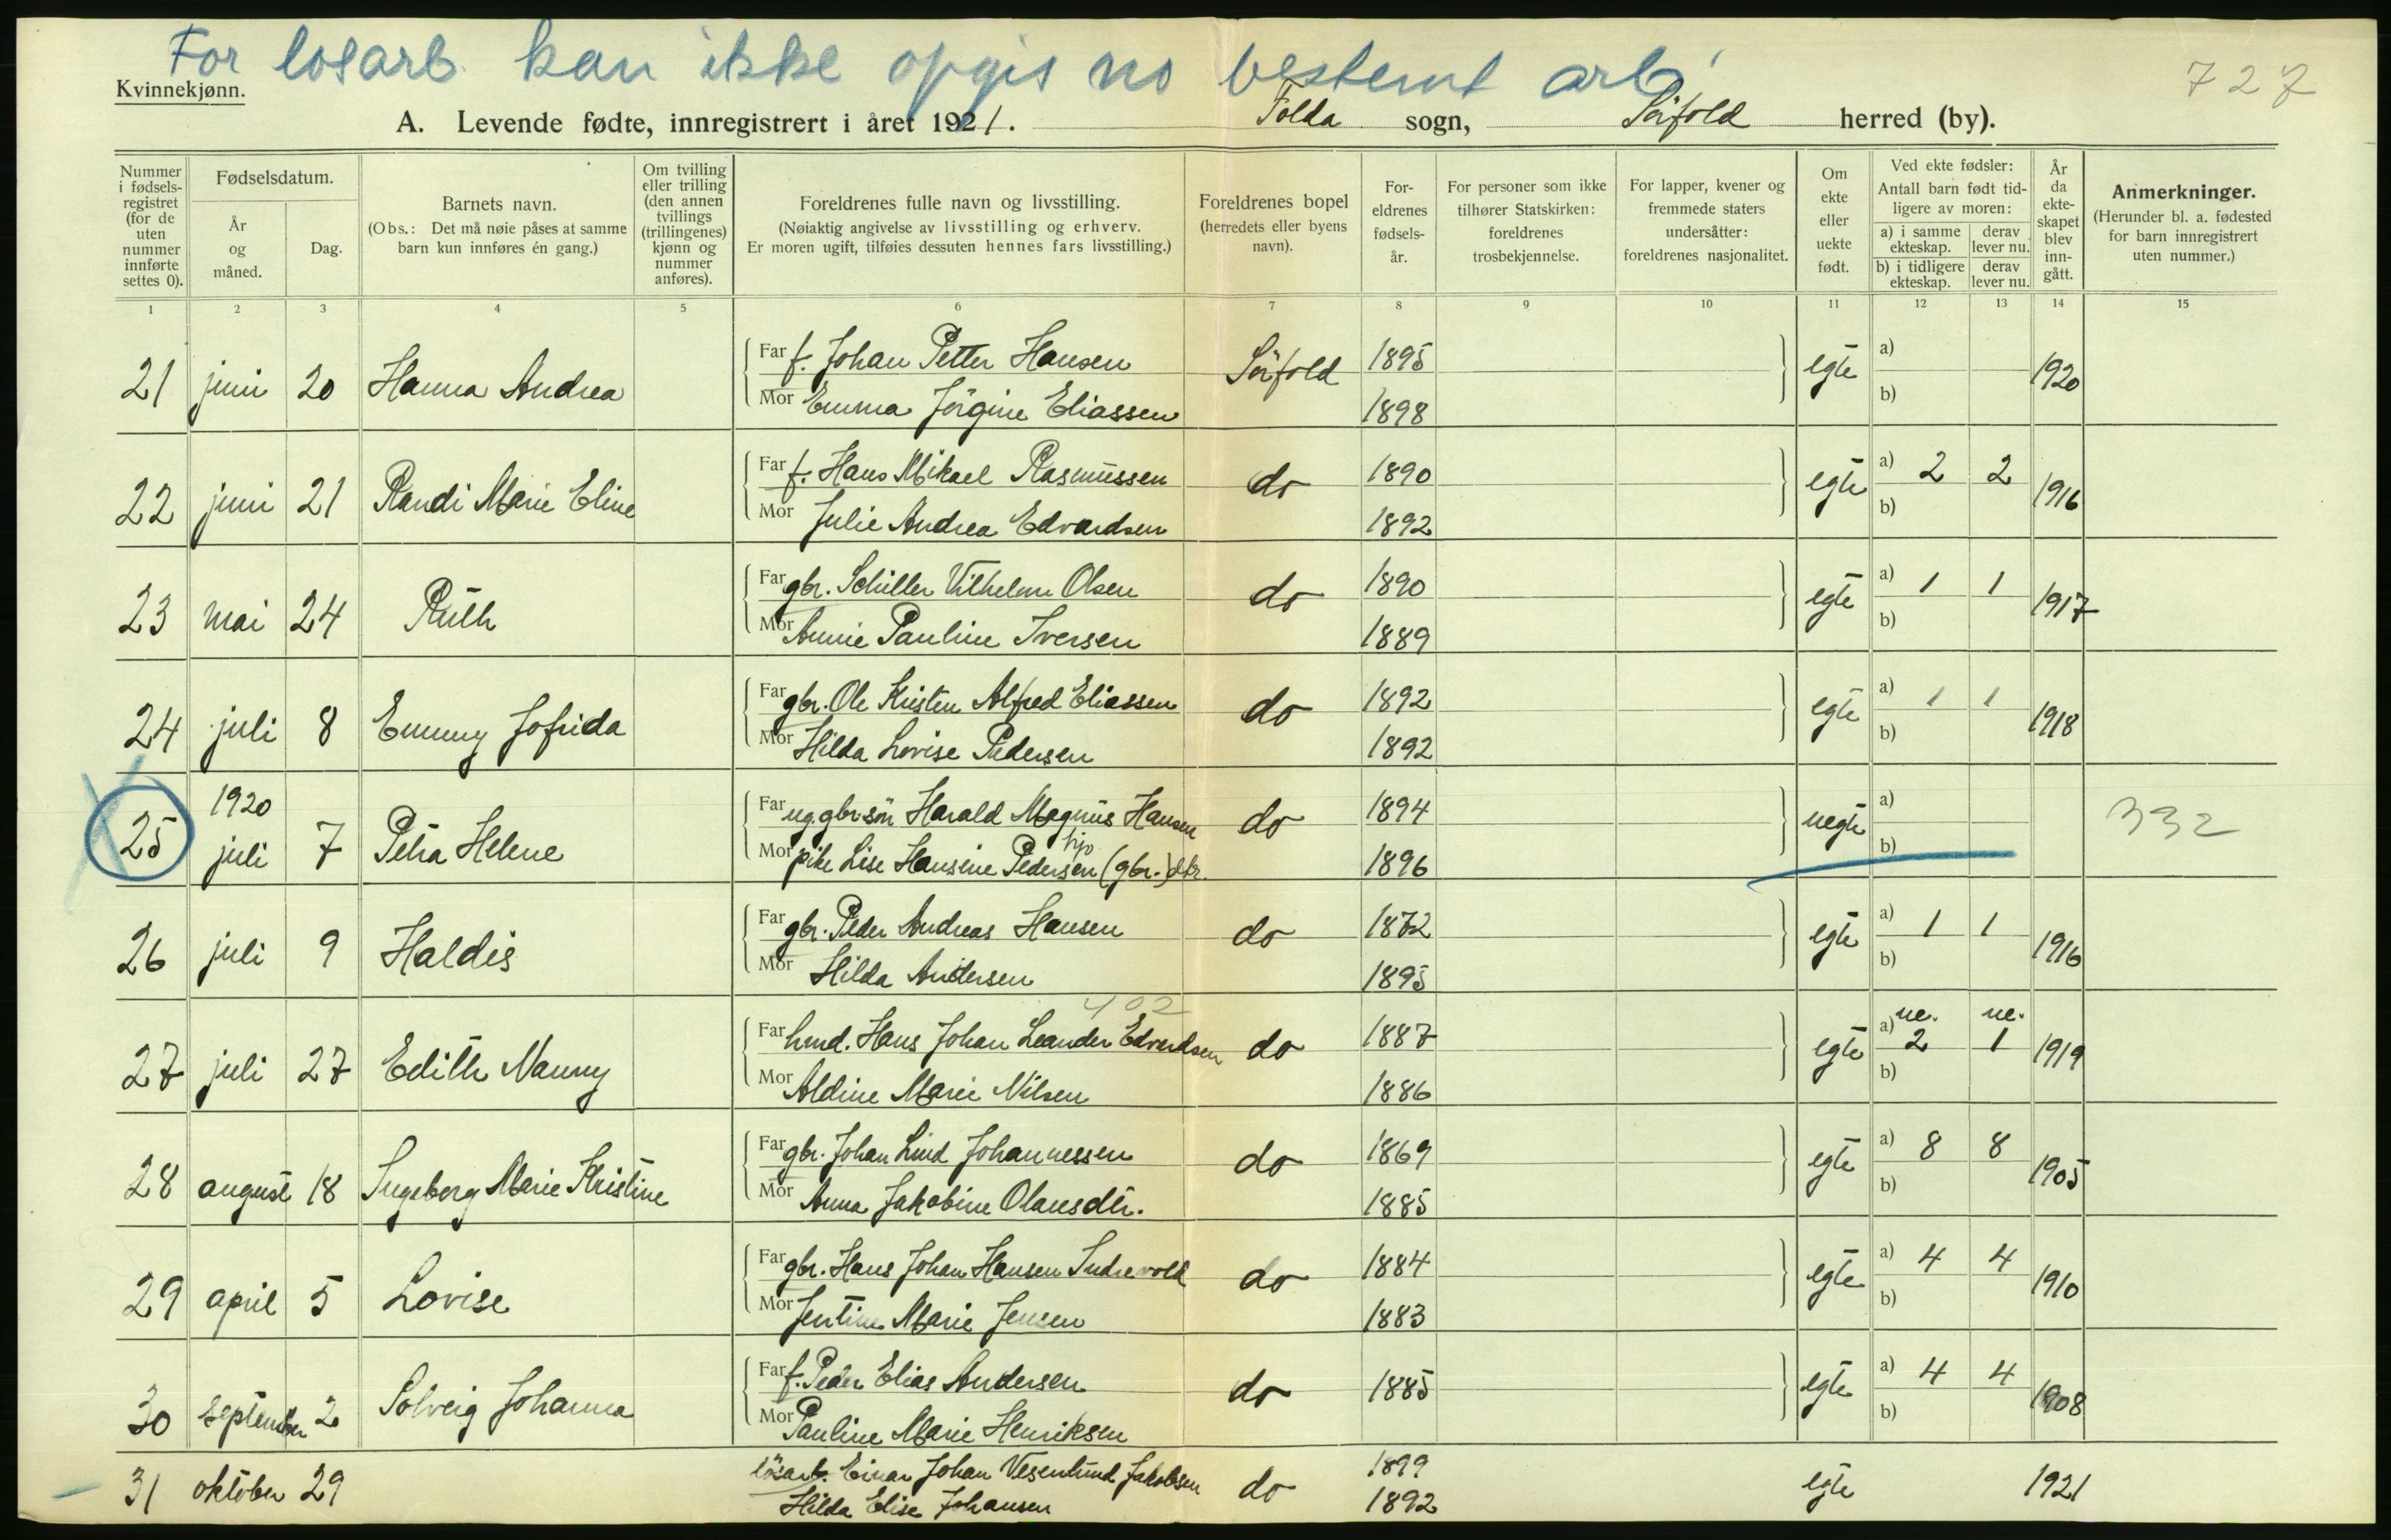 For losarb. kan ikke opgis no bestemt arb.
727
Kvinnekjønn.
A. Levende fødte, innregistrert i året 1921. Folda sogn, Sörfold herred (by).
Nummer i fødselsregistret (for de uten nummer innførte settes 0).
Fødselsdatum.
År og måned.
Dag.
Barnets navn.
(Obs.: Det må nøie påses at samme barn kun innføres én gang.)
Om tvilling eller trilling (den annen tvillings (trillingenes) kjønn og nummer anføres).
Foreldrenes fulle navn og livsstilling.
(Nøiaktig angivelse av livsstilling og erhverv.
Er moren ugift, tilføies dessuten hennes fars livsstilling.)
Foreldrenes bopel
(herredets eller byens navn).
Foreldrenes fødselsår.
For personer som ikke tilhører Statskirken: foreldrenes trosbekjennelse.
For lapper, kvener og fremmede staters undersåtter: foreldrenes nasjonalitet.
Om ekte eller uekte født.
Ved ekte fødsler:
Antall barn født tidligere av moren:
a) i samme ekteskap.
derav lever nu.
b) i tidligere ekteskap.
derav lever nu.
År da ekteskapet blev inngått.
Anmerkninger.
(Herunder bl. a. fødested for barn innregistrert uten nummer.)
1 2 3 4 5 6 7 8 9 10 11 12 13 14 15
21 juni 20 Hanna Andrea Far f. Johan Petter Hansen Sörfold 1895 egte a) b) 1920
Mor Emma Jörgine Eliassen 1898
22 juni 21 Randi Marie Eline Far f. Hans Mikael Rasmussen do 1890 egte a) 2 2 b) 1916
Mor Julie Andrea Edvardsen 1892
23 mai 24 Ruth Far gbr. Schiller Vilhelm Olsen do 1890 egte a) 1 1 b) 1917
Mor Annie Pauline Iversen 1889
24 juli 8 Emmy Jofrida Far gbr. Ole Kristen Alfred Eliassen do 1892 egte a) 1 1 b) 1918
Mor Hilda Lovise Pedersen 1892
25 1920 juli 7 Petra Helene Far ug. gbr sön Harald Magnus Hansen do 1894 uegte a) b) 332
Mor pike Lise Hansine Pedersen (gbr.) dtr. 1896
26 juli 9 Haldis Far gbr. Peder Andreas Hansen do 1872 egte a) 1 1 b) 1916
Mor Hilda Andersen 1895
402
27 juli 27 Edith Nanny Far hmd. Hans Johan Leander Edvardsen do 1887 egte a) ue. 2 ue. 1 b) 1919
Mor Aldine Marie Nilsen 1886
28 august 18 Ingeborg Marie Kristine Far gbr. Johan Lind Johannessen do 1869 egte a) 8 8 b) 1905
Mor Anna Jakobine Olausdtr. 1885
29 april 5 Lovise Far gbr. Hans Johan Hansen Indrevold do 1884 egte a) 4 4 b) 1910
Mor Jentine Marie Jensen 1883
30 september 2 Solveig Johanna Far f. Peder Elias Andersen do 1885 egte a) 4 4 b) 1908
Mor Pauline Marie Henriksen
31 oktober 29 lösarb. Einar Johan Vesenlund Jakobsen do 1899 egte 1921
Hilda Elise Johansen 1892